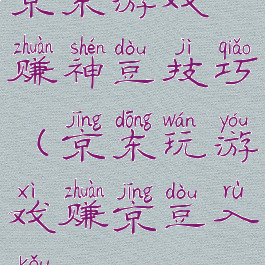 京东游戏
zhuàn shén dòu jì qiǎo
赚神豆技巧
jīng dōng wán yóu
(京东玩游
xì zhuàn jīng dòu rù
戏赚京豆入
kǒu